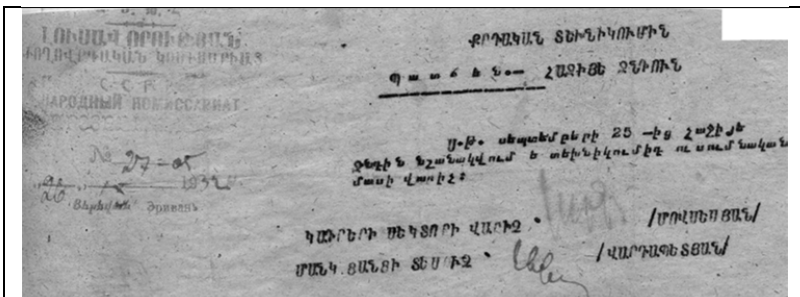 ԼՈՒՍԱՎՈՐՈՒԹՅԱՆ
ԺՈՂՈՎՐԴԱԿԱՆ ԿՈՄԻՍԱՐԻԱՏ
С. С. Р.
НАРОДНЫЙ КОМИССАРИАТ
№ 27-05
26 1932
Յերեվան Эривань
ՔՐԴԱԿԱՆ ՏԵԽՆԻԿՈՒՄԻՆ
Պ ա տ ճ ե ն.— ՀԱՋԻՅԵ ՋՆԴՈՒՆ
Ս.թ. սեպտեմբերի 25 -ից Հաջիյե
Ջնդին նշանակվում ե տեխնիկումիդ ուսումնական
մասի վարիչ:
ԿԱԴՐԵՐԻ ՍԵԿՏՈՐԻ ՎԱՐԻՉ /ՄՈՎՍԵՍՅԱՆ/
ՄԱՆԿ.ՑԱՆՑԻ ՏԵՍՈՒՉ /ՎԱՐԴԱՊԵՏՅԱՆ/